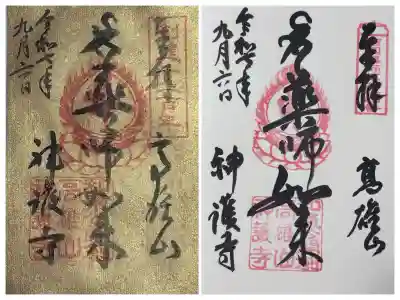 奉拝
高雄山
薬師如来
令和七年
九月六日
神護寺
奉拝
高雄山
薬師如来
令和七年
九月六日
神護寺